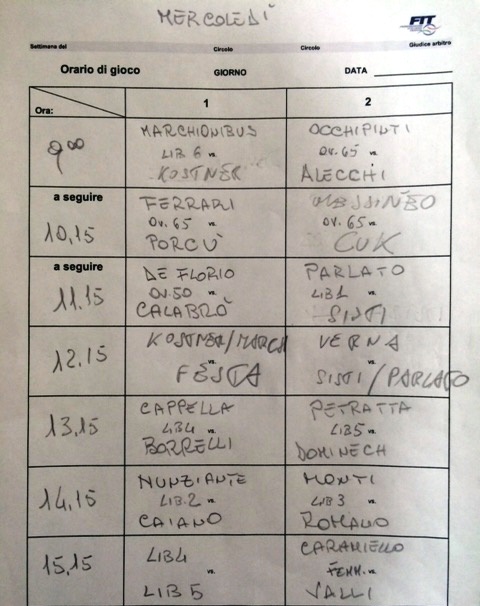 MERCOLEDÌ
FIT
Settimana del Circolo Circolo Giudice arbitro
Orario di gioco GIORNO DATA
Ora: 1 2
9⁰⁰
MARCHIONIBUS
LIB 6 vs.
KOSTNER
OCCHIPINTI
OV. 65 vs.
ALECCHI
a seguire
10,15
FERRARI
OV. 65 vs.
PORCÙ
MESSINEO
OV. 65 vs.
CUK
a seguire
11.15
DE FLORIO
OV.50 vs.
CALABRÒ
PARLATO
LIB1 vs.
SISTI
12.15
KOSTNER/MARCH
vs.
FESTA
VERNA
vs.
SISTI/PARLATO
13,15
CAPPELLA
LIB4 vs.
BORRELLI
PETRATTA
LIB5 vs.
DOMINECH
14,15
NUNZIANTE
LIB.2 vs.
CAIANO
MONTI
LIB 3 vs.
ROMANO
15,15
LIB4
vs.
LIB 5
CARAMIELLO
FEMM. vs.
VALLI